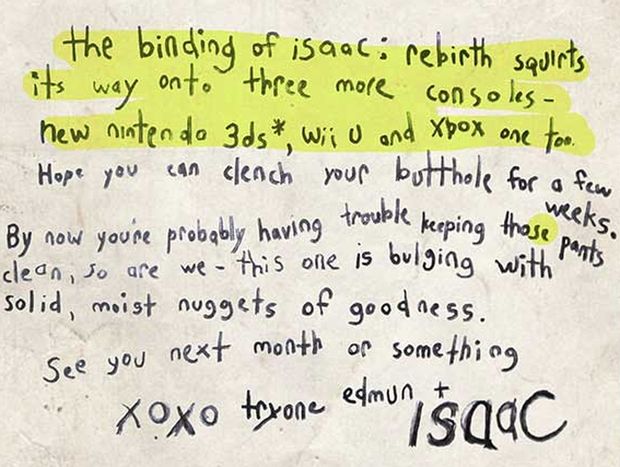 the binding of isaac: rebirth squirts
its way onto three more consoles -
new nintendo 3ds*, Wii U and Xbox one too.
Hope you can clench your butthole for a few weeks.
By now you're probably having trouble keeping those pants
clean, so are we - this one is bulging with
solid, moist nuggets of goodness.
See you next month or something
xoxo tryone edmun + isaac